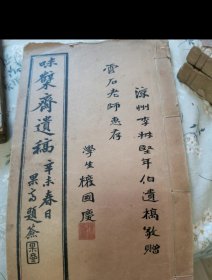 味檗齋遺稿
辛未春日
果高題簽
涼州李林堅年伯遺稿敬贈
雪石老師惠存
學生權國慶